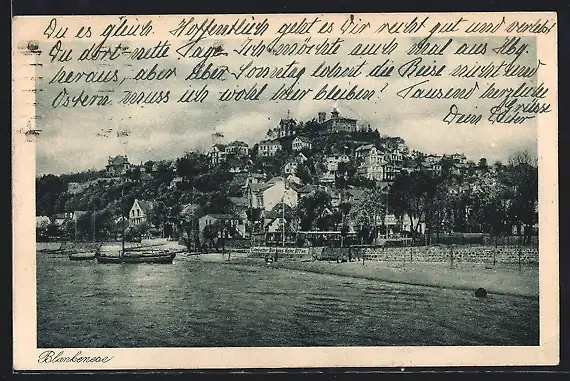 Du es gleich. Hoffentlich geht es Dir recht gut und verlebst
Du dort nette Tage. Ich möchte auch mal aus Abg.
heraus, aber über Sonntag lohnt die Reise nicht und
Ostern muss ich wohl hier bleiben! Tausend herzliche
Grüsse
Dein
Blankenese